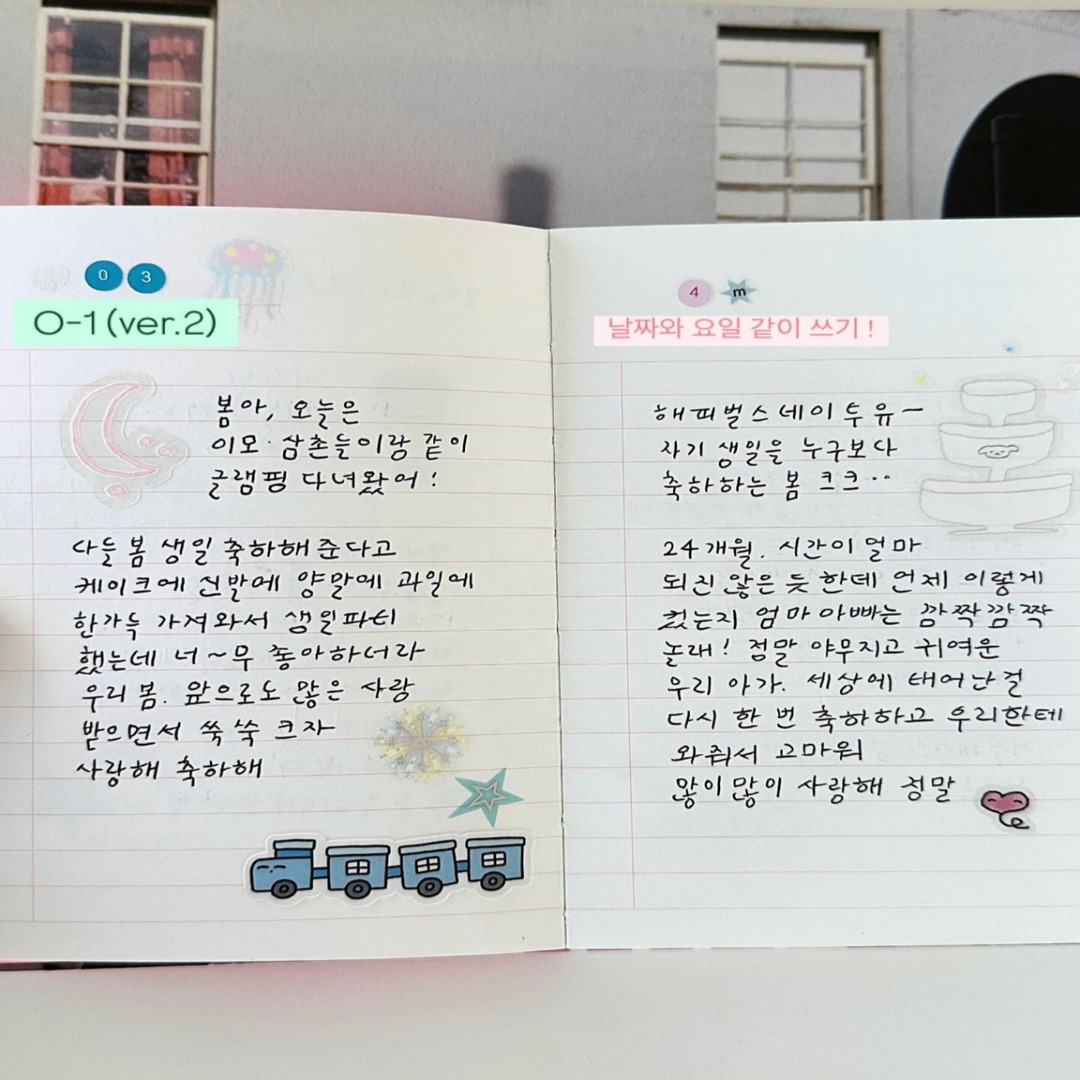 0 3
O-1 (ver.2)
봄아, 오늘은
이모·삼촌들이랑 같이
글램핑 다녀왔어!
다들 봄 생일 축하해 준다고
케이크에 신발에 양말에 과일에
한가득 가져와서 생일파티
했는데 너~무 좋아하더라
우리 봄. 앞으로도 많은 사랑
받으면서 쑥쑥 크자
사랑해 축하해
4 m
날짜와 요일 같이 쓰기 !
해피벌스데이투유ー
자기 생일을 누구보다
축하하는 봄 크크··
24개월. 시간이 얼마
되진 않은 듯 한데 언제 이렇게
컸는지 엄마아빠는 깜짝깜짝
놀래! 정말 야무지고 귀여운
우리 아가. 세상에 태어난걸
다시 한 번 축하하고 우리한테
와줘서 고마워
많이많이 사랑해 정말